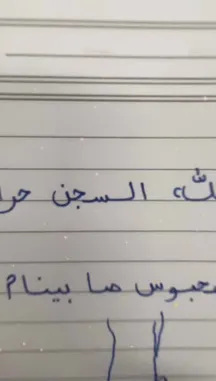 السجن حرا
محبوس ما بينام